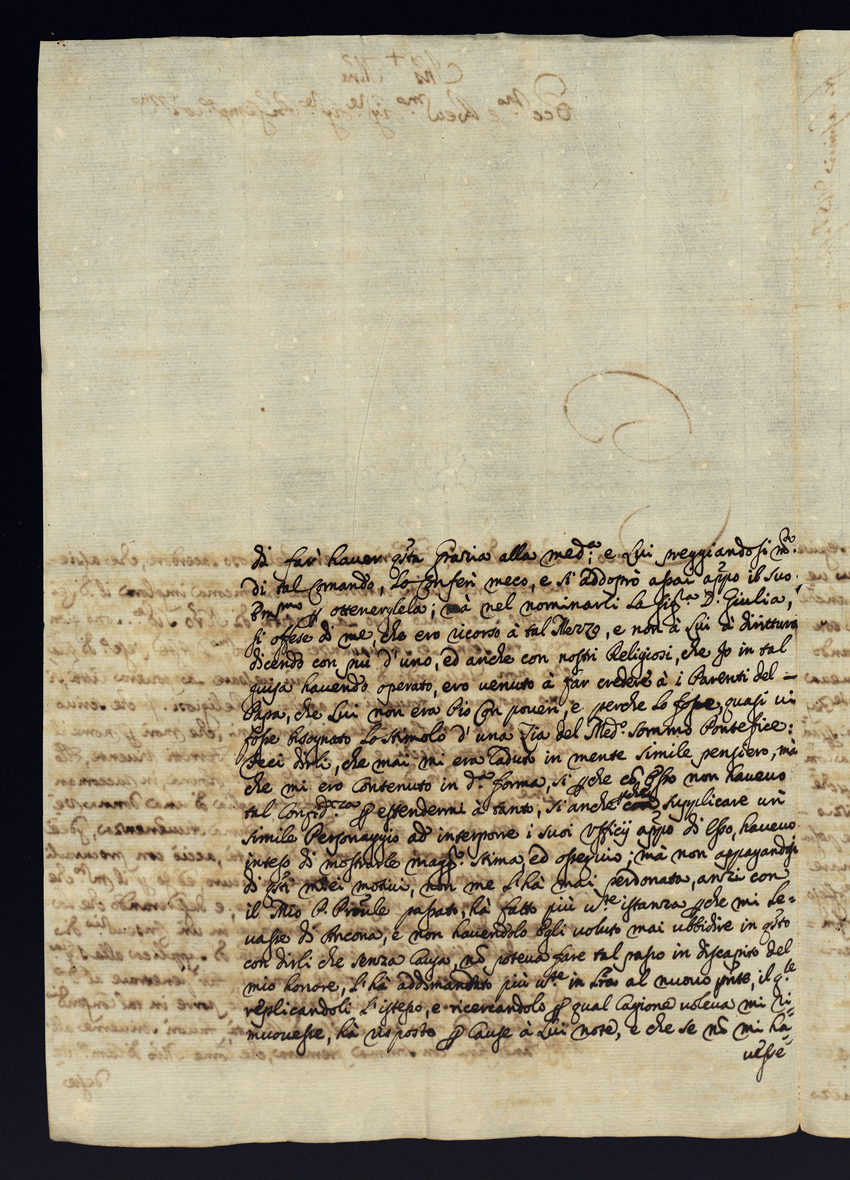 di far' haver q̃sta Grazia alla med.ª e Lui preggiandosi m.to
Di tal Comando, Lo Conferì meco, e si addoprò assai app̃o il suo
Em̃mo p ottenerglela; mà nel nominarli La Sig.ra D. Giulia,
si offese di me, che ero ricorso à tal Mezzo, e non à Lui à dirittura
dicendo con più d'uno, ed anche con nostri Religiosi, che Io in tal
guisa havendo operato, ero venuto à far credere à i Parenti del
Papa, che Lui non era Pio Con poveri, e perche Lo fosse, quasi vi
fosse bisognato Lo stimolo d'una Zia del Med.º Sommo Pontefice:
Feci dirli, che mai mi era Caduto in mente simile pensiero, mà
che mi ero Contenuto in d.ª forma, sì p̱che cõ Esso non havevo
tal Confid.za p estendermi à tanto, si anche perche Supplicare un
simile Personaggio ad interporre i suoi Vfficij app̃o di Esso, havevo
inteso di mostrarle magg.r stima, ed ossequio; mà non appagandosi
di q̃sti miei motivi, non me L'hà mai perdonata, anzi con
il Mio P. Prõule passato, hà fatto più v.te istanza p̱che mi Le-
vasse di Ancona, e non havendolo Egli voluto mai ubbidire in q̃sto
con dirli che senza Causa, nõ poteva fare tal passo in discapito del
mio honore, L'hà addimandato più v.te in Lr̃a al nuovo p̃nte, il q.le
replicandoli L'istesso, e ricercandolo p qual Cagione voleva mi Ri-
muovesse, hà risposto p Cause à Lui note, e che se nõ mi ha-
vesse